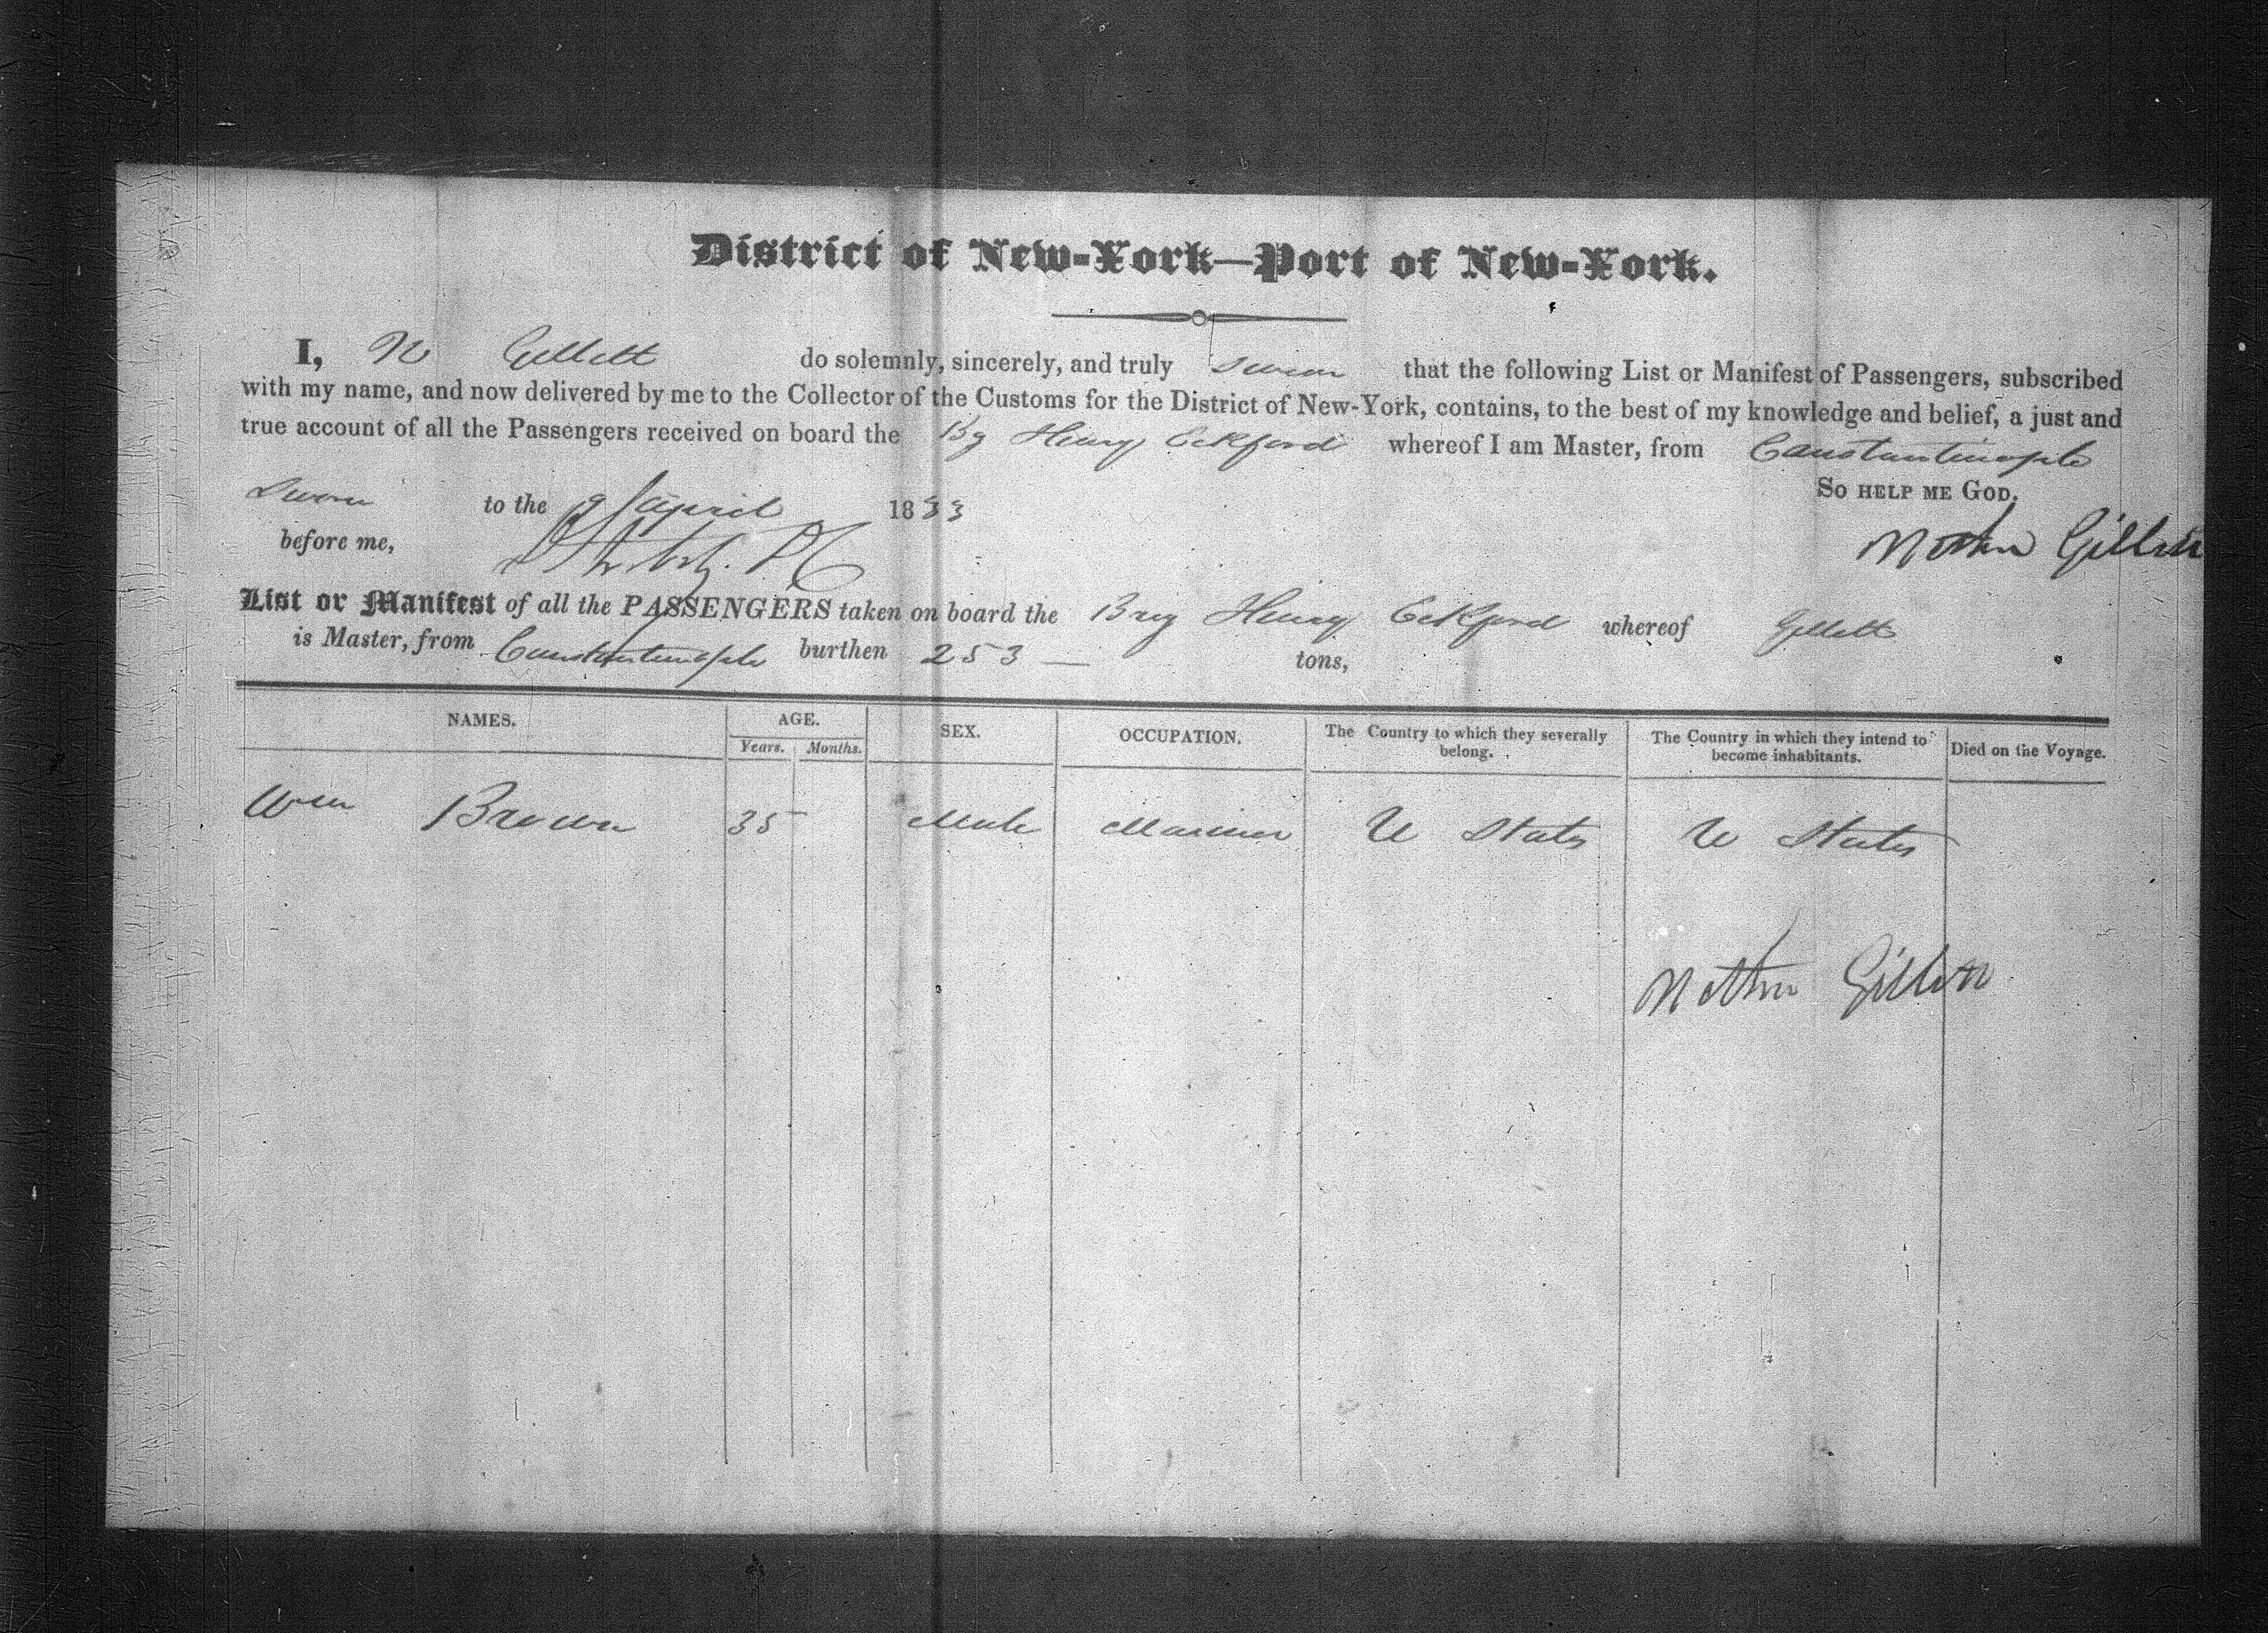 District of New-York—Port of New-York.
I, N Gillett do solemnly, sincerely, and truly swear that the following List or Manifest of Passengers, subscribed
with my name, and now delivered by me to the Collector of the Customs for the District of New-York, contains, to the best of my knowledge and belief, a just and
true account of all the Passengers received on board the Bg Henry Eckford whereof I am Master, from Constantinople
So help me God.
Sworn to the 9 April 1833
before me,
Nathan Gillett
List or Manifest of all the PASSENGERS taken on board the Brig Henry Eckford whereof Gillett
is Master, from Constantinople burthen 253 — tons,
NAMES. AGE. SEX. OCCUPATION. The Country to which they severally belong. The Country in which they intend to become inhabitants. Died on the Voyage.
Years. Months.
Wm Brown 35 Male Mariner U States U States
Nathan Gillett